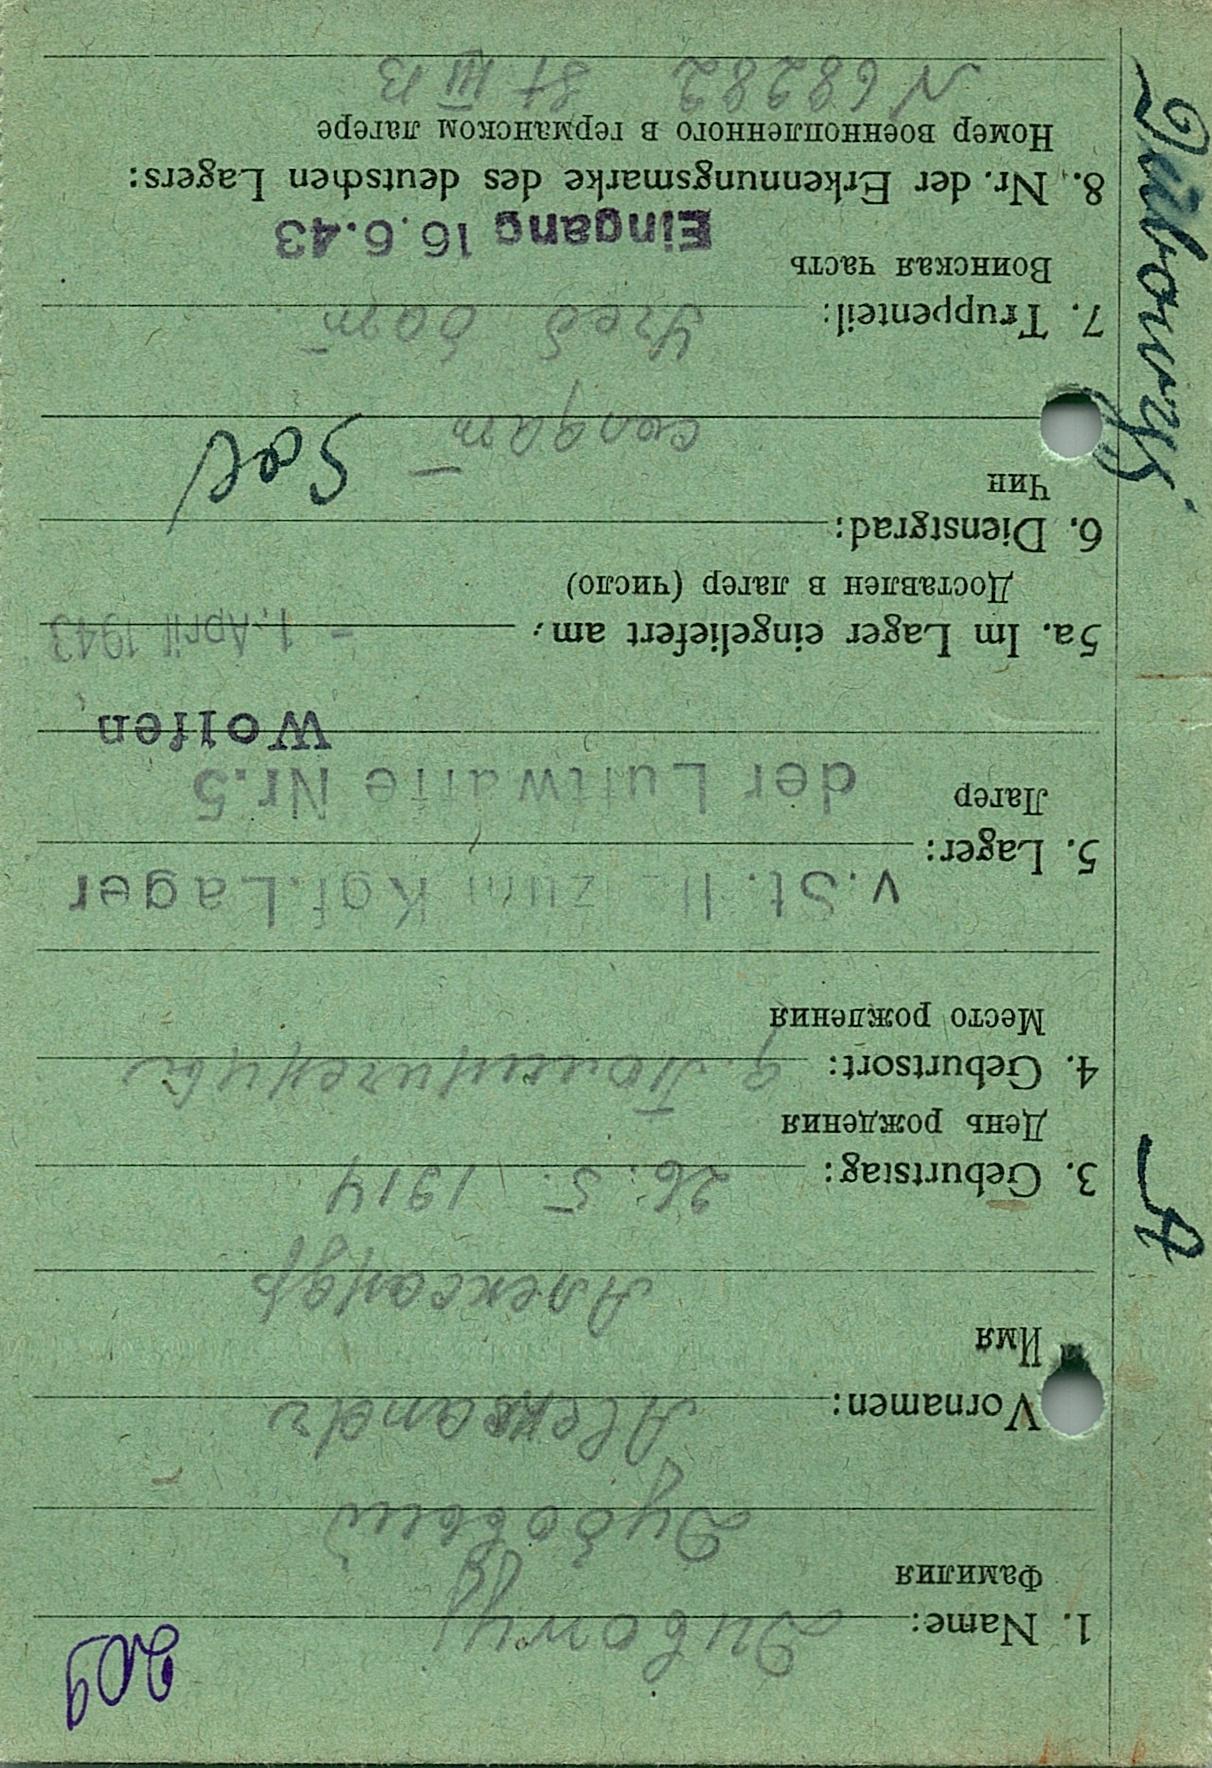 209
1. Name: Dubowyj
Фамилия
Дубовый
Vornamen: Alexandr
Имя
Александр
3. Geburtstag: 26. 5. 1914
День рождения
4. Geburtsort: д.
Место рождения
v. St. zum Kgf. Lager
5. Lager:
Лагер
der Luftwaffe Nr. 5
Wolfen
5a. Im Lager eingeliefert am: - 1. April 1943
Доставлен в лагер (число)
6. Dienstgrad:
Чин
Sol
солдат
7. Truppenteil: бат
Воинская часть
Eingang 16. 6. 43
8. Nr. der Erkennungsmarke des deutschen Lagers:
Номер военнопленного в германском лагере
N 68282 St III B
A
Dubowyj